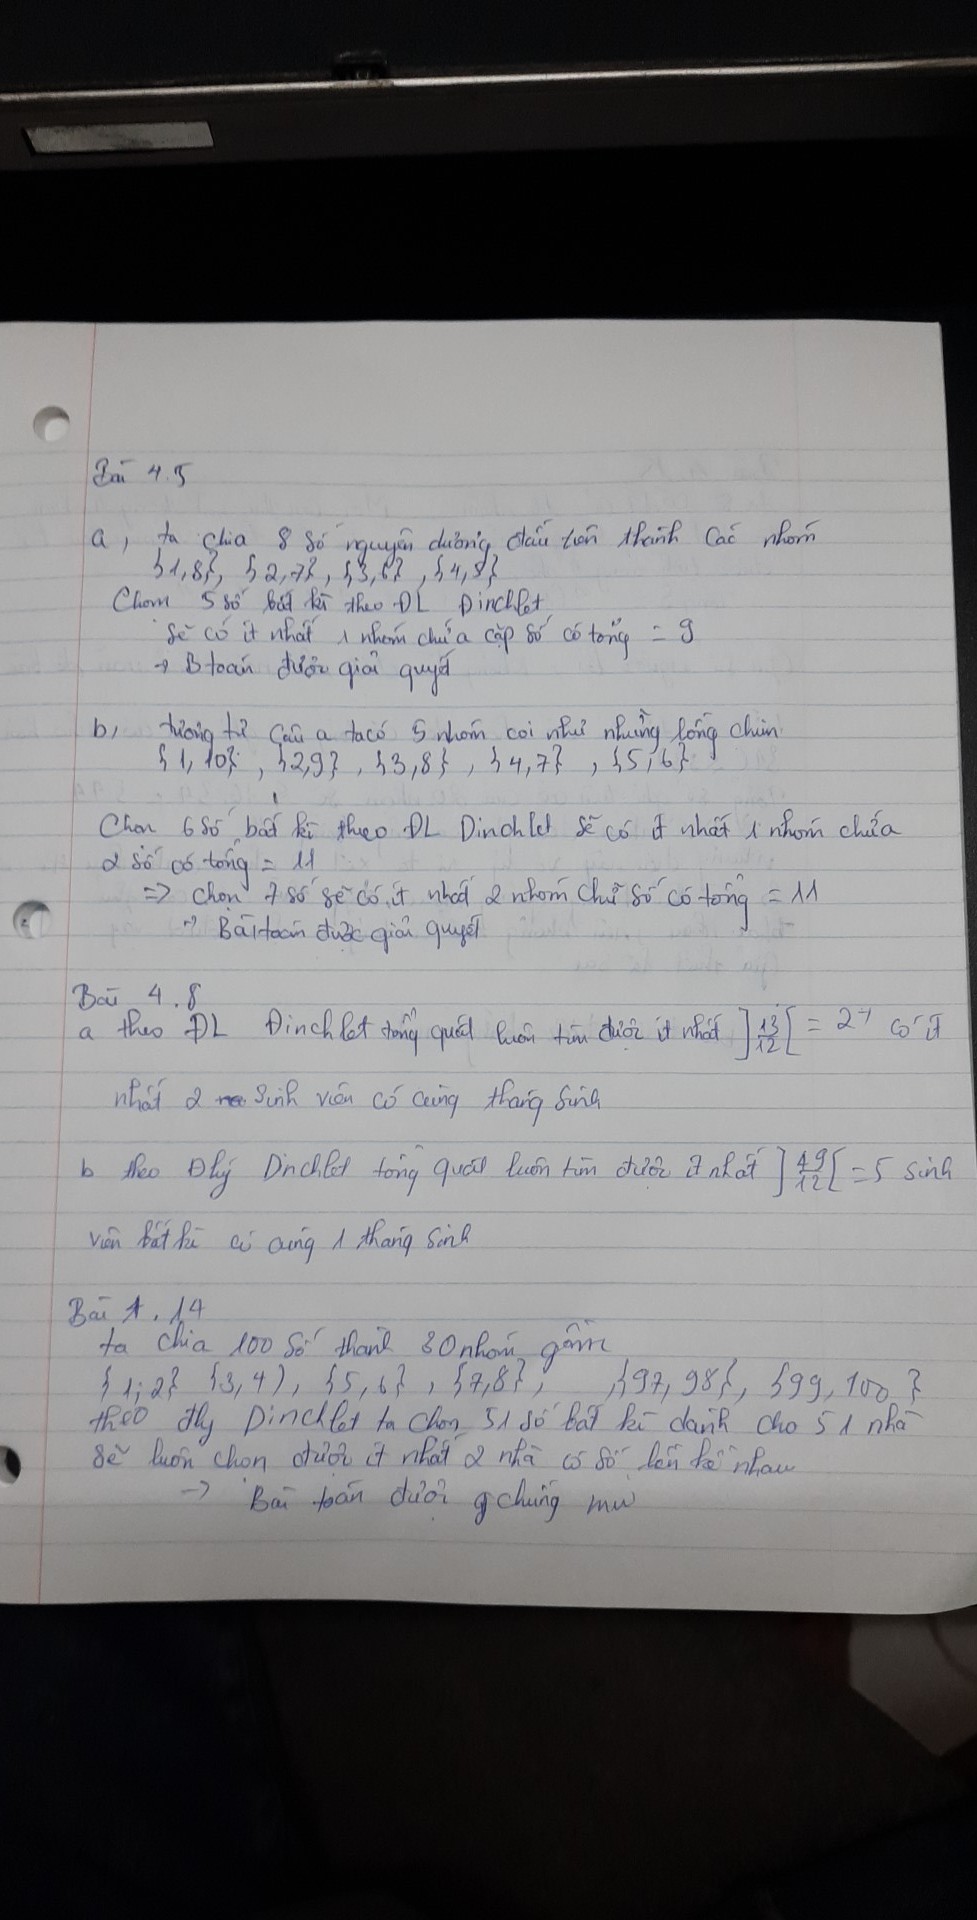 Bài 4.5
a, ta chia 8 số nguyên dương đầu tiên thành các nhóm
{1,8}, {2,7}, {3,6}, {4,5}
Chọn 5 số bất kì theo ĐL Dinchlet
Sẽ có ít nhất 1 nhóm chứa cặp số có tổng = 9
→ B toán được giải quyết
b, tương tự câu a ta có 5 nhóm coi như những lồng chim
{1,10}, {2,9}, {3,8}, {4,7}, {5,6}
Chọn 6 số bất kì theo ĐL Dinchlet sẽ có ít nhất 1 nhóm chứa
2 số có tổng = 11
=> chọn 7 số sẽ có ít nhất 2 nhóm chữ số có tổng = 11
→ Bài toán được giải quyết
Bài 4.8
a theo ĐL Dinchlet tổng quát luôn tìm được ít nhất ]13/12[ = 2 có ít
nhất 2 sinh viên có cùng tháng sinh
b theo Đlý Dinchlet tổng quát luôn tìm được ít nhất ]49/12[ = 5 sinh
viên bất kì có cùng 1 tháng sinh
Bài 1.14
ta chia 100 số thành 50 nhóm gồm
{1;2} {3,4), {5,6}, {7,8}, {97,98}, {99,100}
theo đly Dinchlet ta chọn 51 số bất kì dành cho 51 nhà
sẽ luôn chọn được ít nhất 2 nhà có số liên kề nhau
→ Bài toán được chứng